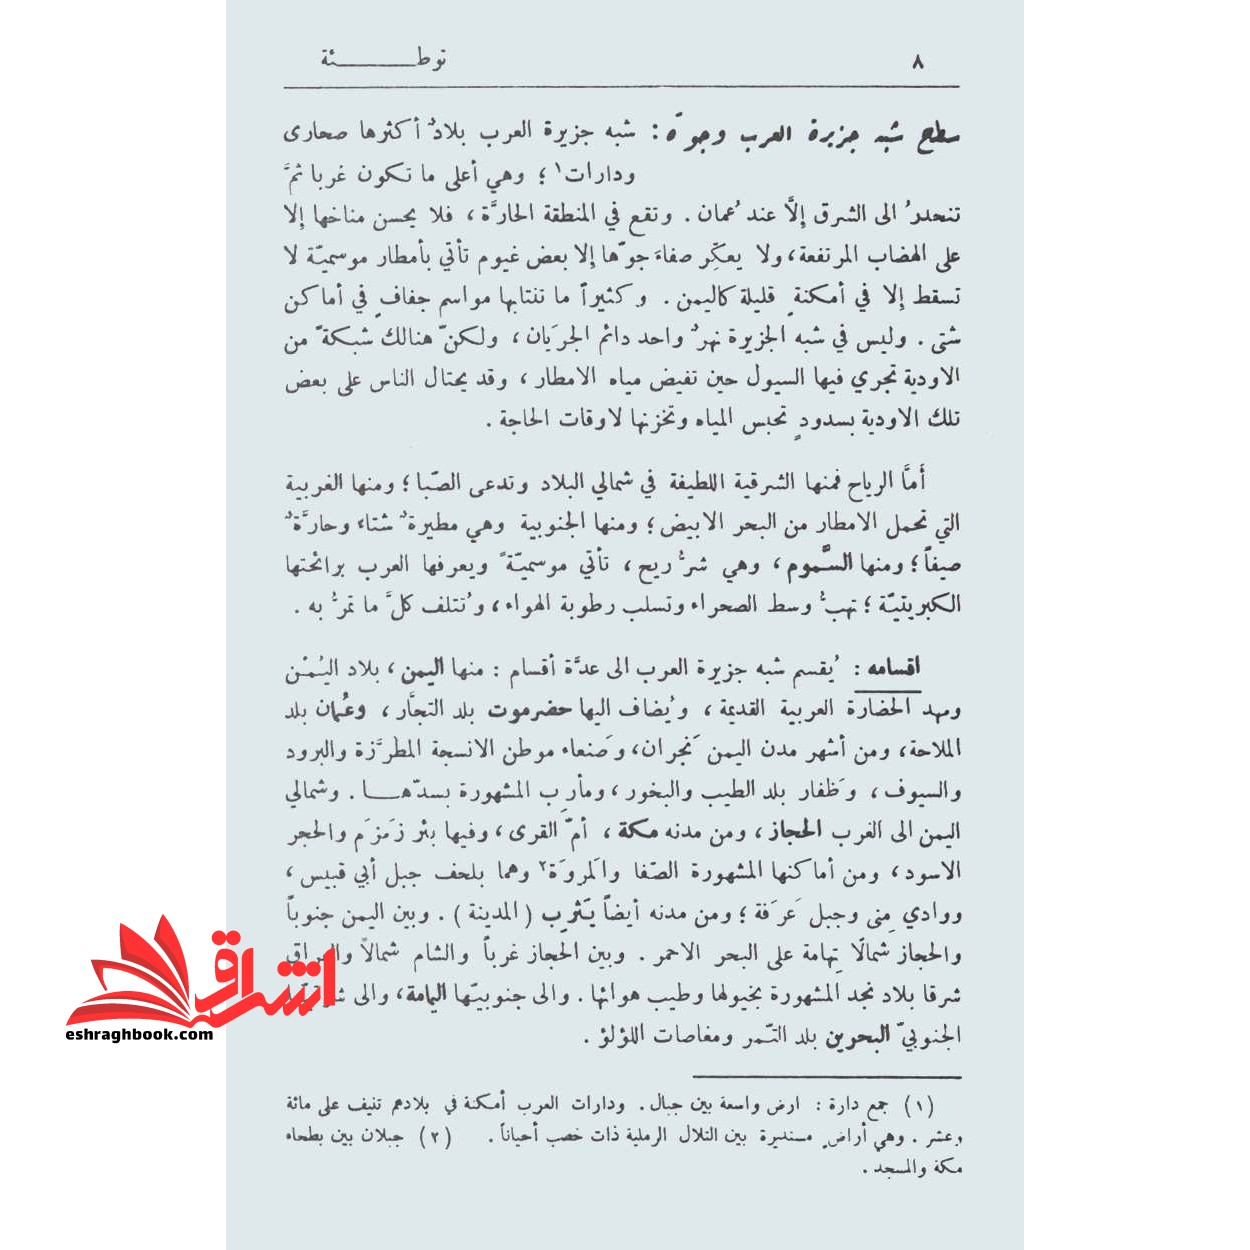 ٨ توطـــــــئة
سطح شبه جزيرة العرب وجوّه : شبه جزيرة العرب بلادٌ أكثرها صحارى
ودارات١ ؛ وهي أعلى ما تكون غربا ثمَّ
تنحدرُ الى الشرق إلَّا عند عُمان . وتقع في المنطقة الحارَّة ، فلا يحسن مناخها إلا
على الهضاب المرتفعة ، ولا يعكِّر صفاءَ جوّها إلا بعض غيوم تأتي بأمطار موسميّة لا
تسقط إلا في أمكنةٍ قليلة كاليمن . وكثيراً ما تنتابها مواسم جفافٍ في أماكن
شتى . وليس في شبه الجزيرة نهرٌ واحد دائم الجرَيان ، ولكنّ هنالك شبكةً من
الاودية تجري فيها السيول حين تفيض مياه الامطار ، وقد يحتال الناس على بعض
تلك الاودية بسدودٍ تحبس المياه وتخزنها لاوقات الحاجة .
أمَّا الرياح فمنها الشرقية اللطيفة في شمالي البلاد وتدعى الصّبا ؛ ومنها الغربية
التي تحمل الامطار من البحر الابيض ؛ ومنها الجنوبية وهي مطيرةٌ شتاء وحارَّةٌ
صيفاً ؛ ومنها السَّموم ، وهي شرُّ ريح ، تأتي موسميّةً ويعرفها العرب برائحتها
الكبريتيّة ؛ تهبُّ وسط الصحراء وتسلب رطوبة الهواء ، وتُتلف كلَّ ما تمرُّ به .
اقسامه : يُقسم شبه جزيرة العرب الى عدَّة أقسام : منها اليمن ، بلاد اليُمْن
ومهد الحضارة العربية القديمة ، ويُضاف اليها حضرموت بلد التجَّار ، وعُمان بلد
الملاحة ، ومن أشهر مدن اليمن نَجران ، وصَنعاء موطن الانسجة المطرَّزة والبرود
والسيوف ، وظَفار بلد الطيب والبخور ، ومأرِب المشهورة بسدّهـــا . وشمالي
اليمن الى الغرب الحجاز ، ومن مدنه مكة ، أمّ القرى ، وفيها بئر زَمزَم والحجر
الاسود ، ومن أماكنها المشهورة الصّفا والمَروَة٢ وهما بلحف جبل أبي قبيس ،
ووادي مِنى وجبل عَرَفة ؛ ومن مدنه أيضاً يَثرِب ( المدينة ) . وبين اليمن جنوباً
والحجاز شمالًا تِهامة على البحر الاحمر . وبين الحجاز غرباً والشام شمالاً والعراق
شرقا بلاد نجد المشهورة بخيولها وطيب هوائها . والى جنوبيّها اليمامة ، والى
الجنوبيّ البحرين بلد التّمر ومغاصات اللؤلؤ .
(١) جمع دارة : ارض واسعة بين جبال . ودارات العرب أمكنة في بلادهم تنيف على مائة
وعشر . وهي أراضٍ مستديرة بين التلال الرملية ذات خصب أحياناً . (٢) جبلان بين بطحاء
مكة والمسجد .
اشراق
eshraghbook.com